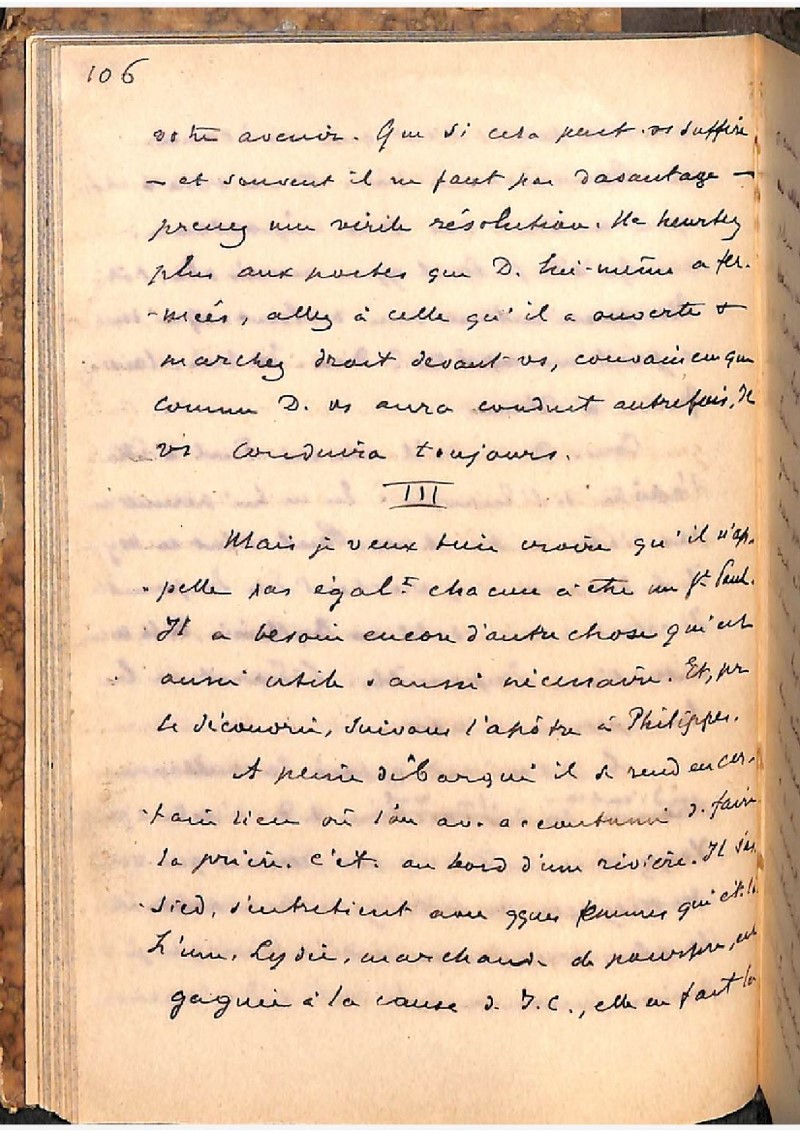 106
votre avenir. Que si cela peut vs suffire
— et souvent il ne faut pas davantage —
prenez une virile résolution. Ne heurtez
plus aux portes que D. lui-même a fer-
-mées, allez à celle qu'il a ouverte &
marchez droit devant vs, convaincu que
comme D. vs aura conduit autrefois, Il
vs conduira toujours.
III
Mais je veux bien croire qu'il n'ap-
-pelle pas égalt chacun à être un St Paul.
Il a besoin encore d'autre chose qui est
aussi utile & aussi nécessaire. Et, pr
le découvrir, suivons l'apôtre à Philippes.
A peine débarqué il se rend en cer-
-tain lieu où l'on av. accoutumé d. faire
la prière. C'ét. au bord d'une rivière. Il s'as-
-sied, s'entretient avec qques femmes qui ét. là.
L'une, Lydie, marchande de pourpre, est
gagnée à la cause d. J.C., elle en fait la